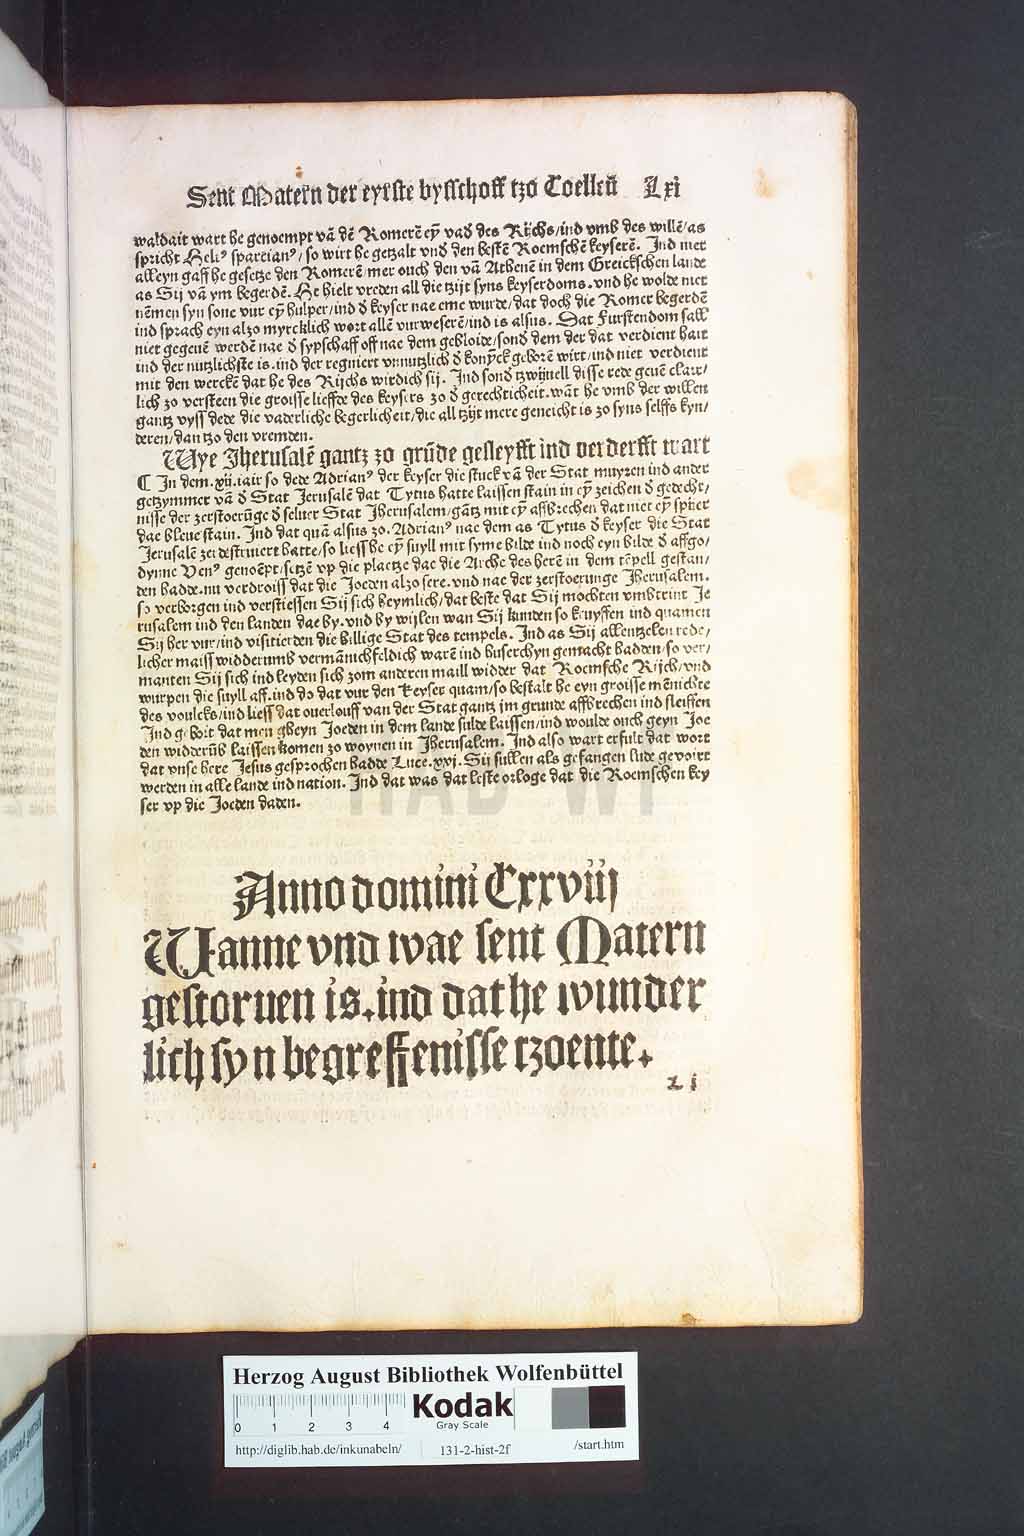 Sent Matern der eyrste bysschoff tzo Coellen̄ Lxi
waldait wart he genoempt vā dē Romerē eȳ vad des Rijchs/ind vmb des willē/as
spricht Heliꝰ sparcianꝰ/so wirt he getzalt vnd den bestē Roemschē keyserē. Ind niet
alleyn gaff he gesetze den Romerē/mer ouch den vā Athenē in dem Greickschen lande
as Sij vā ym begerdē. He hielt vreden all die tzijt syns keyserdoms. vnd he wolde niet
nēmen syn sone vur eȳ hulper/ind d keyser nae eme wurde/dat doch die Romer begerdē
ind sprach eyn alzo myrcklich wort allē vurweserē/ind is alsus. Dat Furstendom sall
niet gegeuē werdē nae d sypschafft off nae dem gebloide/sond dem der dat verdient hait
ind der nutzlichste is. ind der regniert vnnutzlich d konȳck geborē wirt/ind niet verdient
mit den werckē dat he des Rijchs wirdich sij. Ind sond tzwijuell disse rede geuē clair/
lich zo versteen die groisse lieffde des keysers zo d gerechticheit. wāt he vmb der willen
gantz vyss dede die vaderliche begerlicheit/die all tzijt mere geneicht is zo syns selffs kyn/
deren/dan tzo den vremden.
Wye Jherusalē gantz zo grūde gesleyfft ind verderfft wart
¶ In dem .xij. iair so dede Adrianꝰ der keyser die stuck vā der Stat muyren ind ander
getzymmer vā d Stat Jerusalē dat Tytus hatte laissen stain in eȳ zeichen d gedecht/
nisse der zerstoerūge d seluer Stat Jherusalem/gātz mit eȳ affbrechen dat niet eȳ spiier
dae bleue stain. Ind dat quā alsus zo. Adrianꝰ nae dem as Tytus d keyser die Stat
Jerusalē zer destruiert hatte/so liess he eȳ suyll mit syme bilde ind noch eyn bilde d affgo/
dynne Venꝰ genoēpt/setzē vp die plaetze dae die Arche des herē in dem tēpell gestan/
den hadde. nu verdroiss dat die Joeden alzo sere. vnd nae der zerstoerunge Jherusalem.
so verborgen ind verstiessen Sij sich heymlich/dat beste dat Sij mochten vmbtrint Je
rusalem ind den landen dae by. vnd by wijlen wan Sij kunden so kruyffen ind quamen
Sij her vur/ind visitierden die hillige Stat des tempels. Ind as Sij allentzelen rede/
licher maiss widderumb vermānichfeldich warē ind huserchyn gemacht hadden/so ver/
manten Sij sich ind leyden sich zom anderen maill widder dat Roemsche Rijch/vnd
wurpen die suyll aff. ind do dat vur den keyser quam/so bestalt he eyn groisse mēnichte
des voulcks/ind liess dat ouerlouff van der Stat gantz im grunde affbrechen ind sleiffen
Ind geboit dat men gheyn Joeden in dem lande sulde laissen/ind woulde ouch geyn Joe
den widderūb laissen komen zo woynen in Jherusalem. Ind also wart erfult dat wort
dat vnse here Jesus gesprochen hadde Luce. xxj. Sij sullen als gefangen lude gevoirt
werden in alle lande ind nation. Ind dat was dat leste orloge dat die Roemschen key
ser vp die Joeden daden.
Anno domini Cxxviij
Wanne vnd wae sent Matern
gestoruen is. ind dat he wunder
lich syn begreffenisse tzoente.
L i
HAB WF
Herzog August Bibliothek Wolfenbüttel
0 1 2 3 4
Kodak
Gray Scale
http://diglib.hab.de/inkunabeln/ 131-2-hist-2f /start.htm